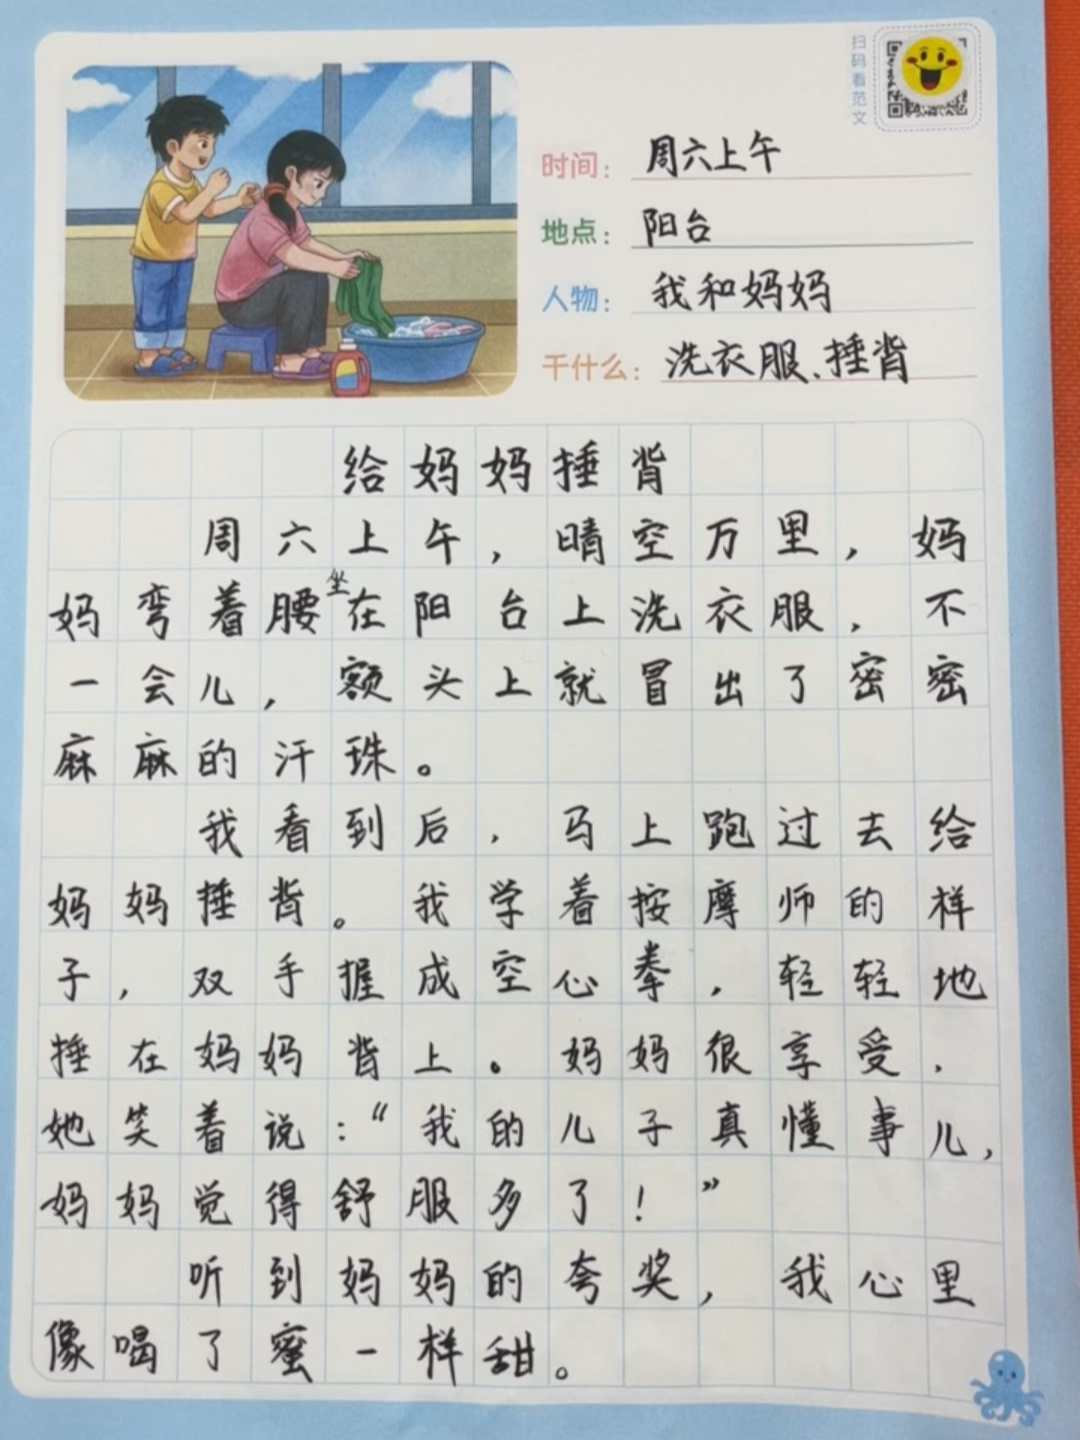 扫码看范文
时间：周六上午
地点：阳台
人物：我和妈妈
干什么：洗衣服、捶背
给妈妈捶背
周六上午，晴空万里，妈
妈弯着腰坐在阳台上洗衣服，不
一会儿，额头上就冒出了密密
麻麻的汗珠。
我看到后，马上跑过去给
妈妈捶背。我学着按摩师的样
子，双手握成空心拳，轻轻地
捶在妈妈背上。妈妈很享受，
她笑着说：“我的儿子真懂事儿，
妈妈觉得舒服多了！”
听到妈妈的夸奖，我心里
像喝了蜜一样甜。